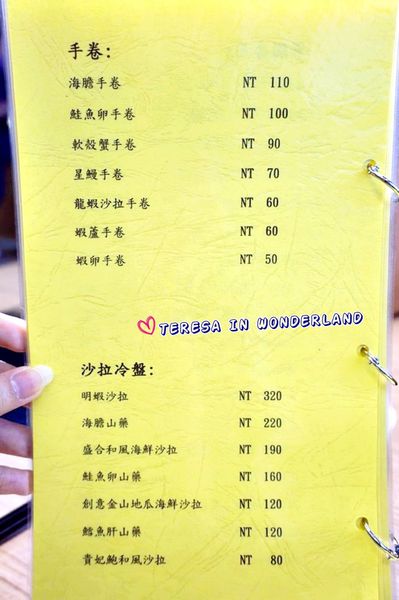 手卷:
海膽手卷 NT 110
鮭魚卵手卷 NT 100
軟殼蟹手卷 NT 90
星鰻手卷 NT 70
龍蝦沙拉手卷 NT 60
蝦蘆手卷 NT 60
蝦卵手卷 NT 50
TERESA IN WONDERLAND
沙拉冷盤:
明蝦沙拉 NT 320
海膽山藥 NT 220
盛合和風海鮮沙拉 NT 190
鮭魚卵山藥 NT 160
創意金山地瓜海鮮沙拉 NT 120
鱈魚肝山藥 NT 120
貴妃鮑和風沙拉 NT 80